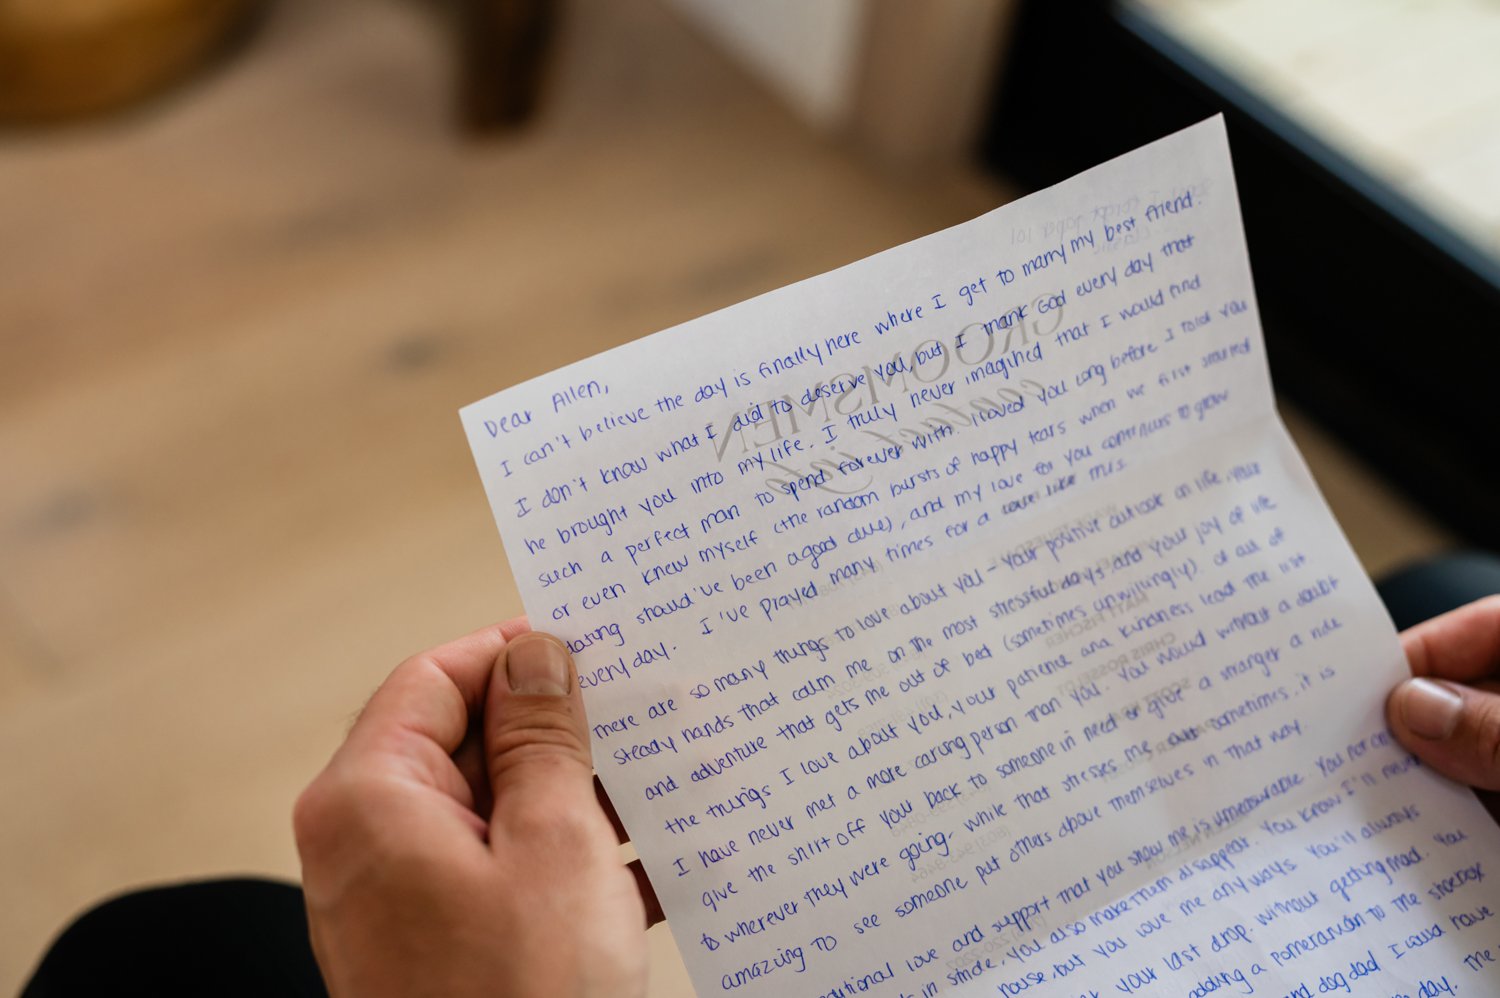 Dear Allen,
I can't believe the day is finally here where I get to marry my best friend.
I don't know what I did to deserve you, but I thank God every day that
he brought you into my life. I truly never imagined that I would find
such a perfect man to spend forever with. I loved you long before I told you
or even knew myself (the random bursts of happy tears when we first started
dating should've been a good clue), and my love for you continues to grow
every day. I've prayed many times for a love like this.
There are so many things to love about you - your positive outlook on life, your
steady hands that calm me on the most stressful days, and your joy of life
and adventure that gets me out of bed (sometimes unwillingly). Of all of
the things I love about you, your patience and kindness lead the list.
I have never met a more caring person than you. You would without a doubt
give the shirt off your back to someone in need or give a stranger a ride
to wherever they were going. While that stresses me out sometimes, it is
amazing to see someone put others above themselves in that way.
love and support that you show me is immeasurable. You not
in stride, you also make them disappear. You know I'll
house but you love me anyways. You'll always
your last drop without getting mad. You
adding a pomeranian to the shoebox
and dog dad I could have
day. The
GROOMSMEN
contact info
MATT FISCHER
CHRIS ROSSELOT